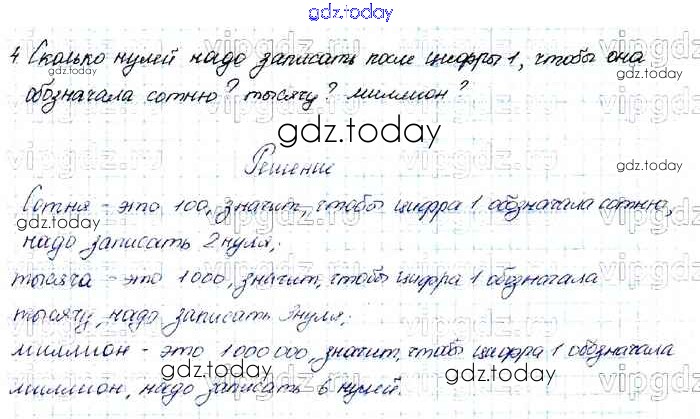 gdz.today
4 Сколько нулей надо записать после цифры 1, чтобы она
обозначала сотню? тысячу? миллион?
gdz.today
Решение
Сотня - это 100, значит, чтобы цифра 1 обозначала сотню,
надо записать 2 нуля;
тысяча - это 1000, значит, чтобы цифра 1 обозначала
тысячу, надо записать 3 нуля;
миллион - это 1000 000, значит, чтобы цифра 1 обозначала
миллион, надо записать 6 нулей.
gdz.today